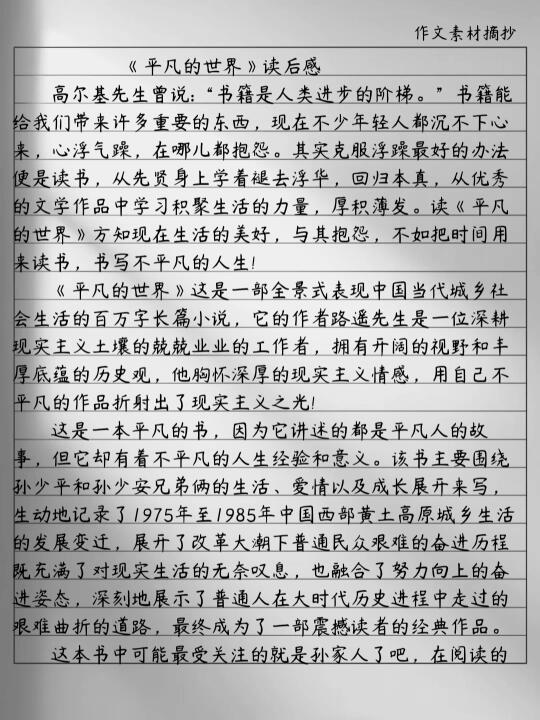 作文素材摘抄
《平凡的世界》读后感
高尔基先生曾说:“书籍是人类进步的阶梯。”书籍能
给我们带来许多重要的东西，现在不少年轻人都沉不下心
来，心浮气躁，在哪儿都抱怨。其实克服浮躁最好的办法
便是读书，从先贤身上学着褪去浮华，回归本真，从优秀
的文学作品中学习积聚生活的力量，厚积薄发。读《平凡
的世界》方知现在生活的美好，与其抱怨，不如把时间用
来读书，书写不平凡的人生!
《平凡的世界》这是一部全景式表现中国当代城乡社
会生活的百万字长篇小说，它的作者路遥先生是一位深耕
现实主义土壤的兢兢业业的工作者，拥有开阔的视野和丰
厚底蕴的历史观，他胸怀深厚的现实主义情感，用自己不
平凡的作品折射出了现实主义之光!
这是一本平凡的书，因为它讲述的都是平凡人的故
事，但它却有着不平凡的人生经验和意义。该书主要围绕
孙少平和孙少安兄弟俩的生活、爱情以及成长展开来写，
生动地记录了1975年至1985年中国西部黄土高原城乡生活
的发展变迁，展开了改革大潮下普通民众艰难的奋进历程
既充满了对现实生活的无奈叹息，也融合了努力向上的奋
进姿态，深刻地展示了普通人在大时代历史进程中走过的
艰难曲折的道路，最终成为了一部震撼读者的经典作品。
这本书中可能最受关注的就是孙家人了吧，在阅读的